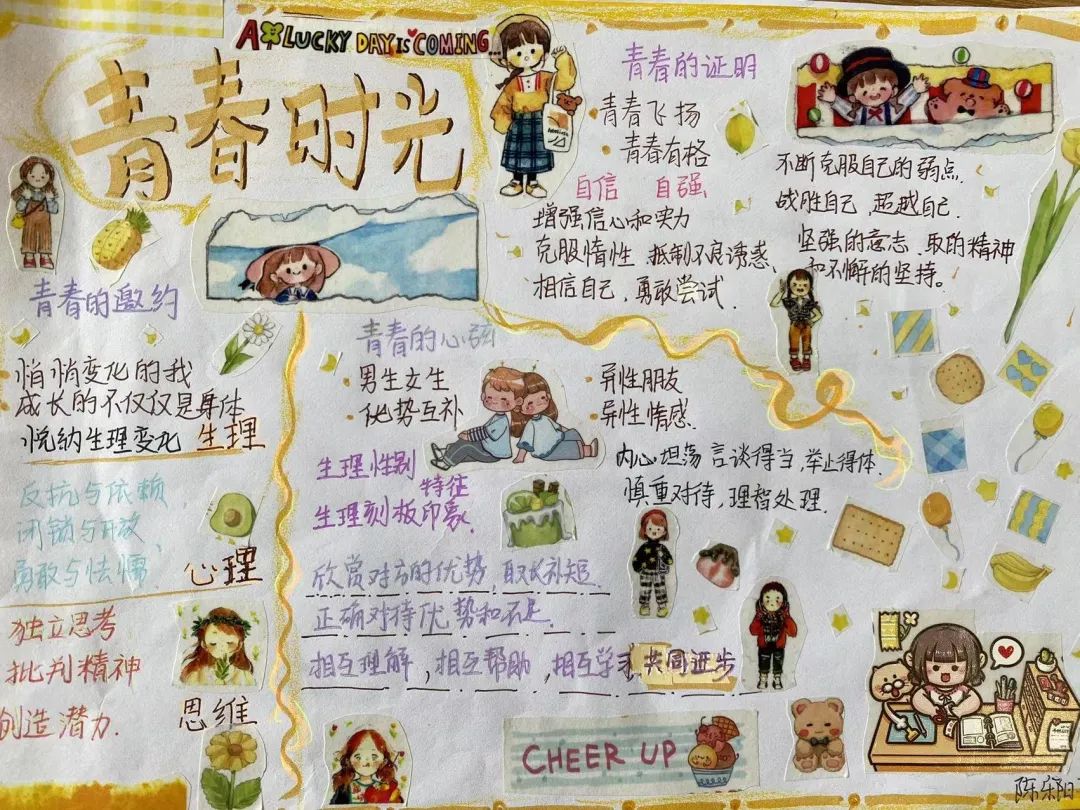 A LUCKY DAY IS COMING...
青春时光
青春的邀约
悄悄变化的我
成长的不仅仅是身体
悦纳生理变化 生理
反抗与依赖
闭锁与开放
勇敢与怯懦、
心理
独立思考
批判精神
创造潜力.
思维
青春的心弦
·男生女生
·优势互补
·异性朋友
·异性情感.
生理性别
特征
生理刻板印象.
内心坦荡 言谈得当,举止得体.
慎重对待,理智处理.
欣赏对方的优势,取长补短.
正确对待优势和不足.
相互理解,相互帮助,相互学习 共同进步
青春的证明
·青春飞扬
·青春有格
自信 自强
增强信心和实力
克服惰性,抵制不良诱惑、
相信自己,勇敢尝试.
不断克服自己的弱点.
战胜自己,超越自己.
坚强的意志.取的精神
和不懈的坚持。
CHEER UP
陈